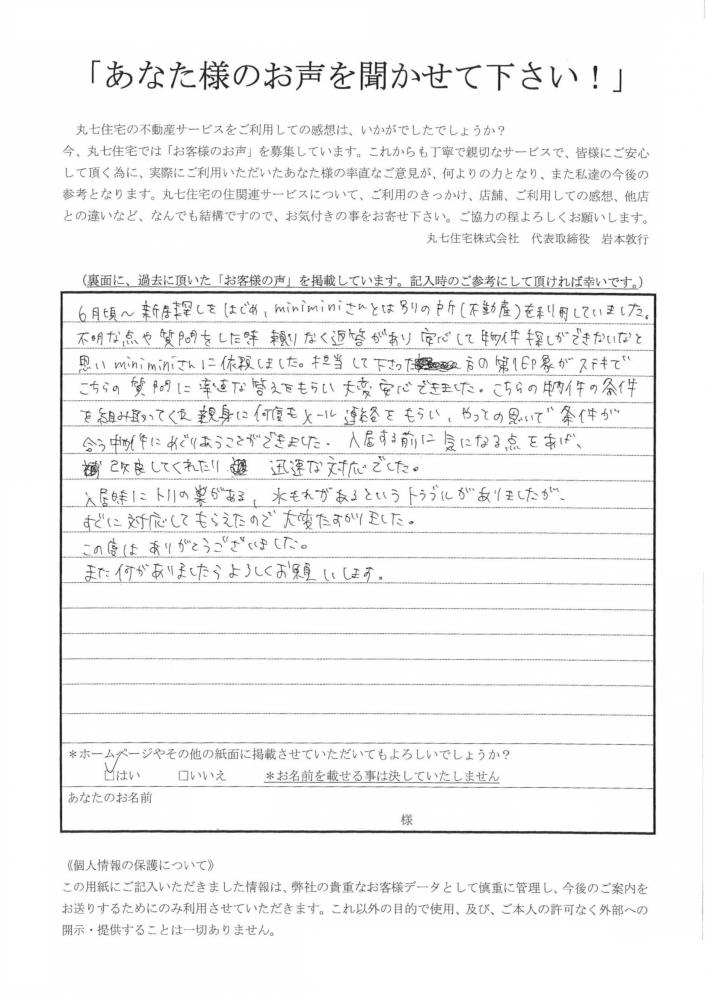 「あなた様のお声を聞かせて下さい！」
丸七住宅の不動産サービスをご利用しての感想は、いかがでしたでしょうか？
今、丸七住宅では「お客様のお声」を募集しています。これからも丁寧で親切なサービスで、皆様にご安心
して頂く為に、実際にご利用いただいたあなた様の率直なご意見が、何よりの力となり、また私達の今後の
参考となります。丸七住宅の住関連サービスについて、ご利用のきっかけ、店舗、ご利用しての感想、他店
との違いなど、なんでも結構ですので、お気付きの事をお寄せ下さい。ご協力の程よろしくお願いします。
丸七住宅株式会社　代表取締役　岩本敦行
（裏面に、過去に頂いた「お客様の声」を掲載しています。記入時のご参考にして頂ければ幸いです。）
6月頃～新居探しをはじめ、miniminiさんとは別りの所(不動産)を利用していました。
不明な点や質問をした時 頼りなく返答があり 安心して物件探しができないなと
思いminiminiさんに依頼しました。担当して下さった方の第1印象がステキで
こちらの質問に率直な答えをもらい大変安心できました。こちらの物件の条件
を組み取ってくれ親身に何度もメール連絡をもらい、やっとの思いで条件が
合う物件にめぐりあうことができました。入居する前に気になる点をあげ、
改良してくれたり 迅速な対応でした。
入居時にトリの巣がある、水もれがあるというトラブルがありましたが、
すぐに対応してもらえたので大変たすかりました。
この度はありがとうございました。
また何がありましたらよろしくお願いします。
＊ホームページやその他の紙面に掲載させていただいてもよろしいでしょうか？
☑はい　□いいえ　＊お名前を載せる事は決していたしません
あなたのお名前
様
《個人情報の保護について》
この用紙にご記入いただきました情報は、弊社の貴重なお客様データとして慎重に管理し、今後のご案内を
お送りするためにのみ利用させていただきます。これ以外の目的で使用、及び、ご本人の許可なく外部への
開示・提供することは一切ありません。